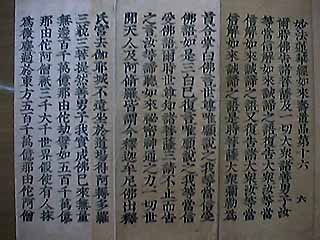 妙法蓮華經如來壽量品第十六 六
爾時佛告諸菩薩及一切大衆諸善男子汝
等當信解如來誠諦之語復告大衆汝等當
信解如來誠諦之語又復告諸大衆汝等當
信解如來誠諦之語是時菩薩大衆彌勒爲
首合掌白佛言世尊唯願說之我等當信受
佛語如是三白已復言唯願說之我等當信
受佛語爾時世尊知諸菩薩三請不止而告
之言汝等諦聽如來祕密神通之力一切世
間天人及阿脩羅皆謂今釋迦牟尼佛出釋
氏宮去伽耶城不遠坐於道場得阿耨多羅
三藐三菩提然善男子我實成佛已來無量
無邊百千萬億那由佗劫譬如五百千萬億
那由佗阿僧祇三千大千世界假使有人抹
爲微塵過於東方五百千萬億那由佗阿僧